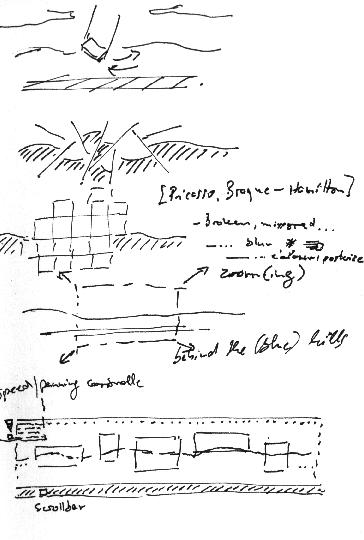 [Picasso, Braque - Hamilton]
- Broken, mirrored...
- ... blur
zoom(ing)
behind the (blue) hills
speed/panning controlle
scrollbar